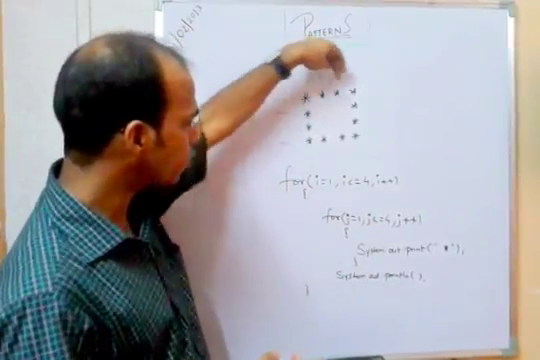 /02/2013
PATTERNS
* * * *
* *
* *
* * * *
for(i=1, i<=4, i++)
{
for(j=1, j<=4, j++)
{
System.out.print(" *"),
}
System.out.println(),
}